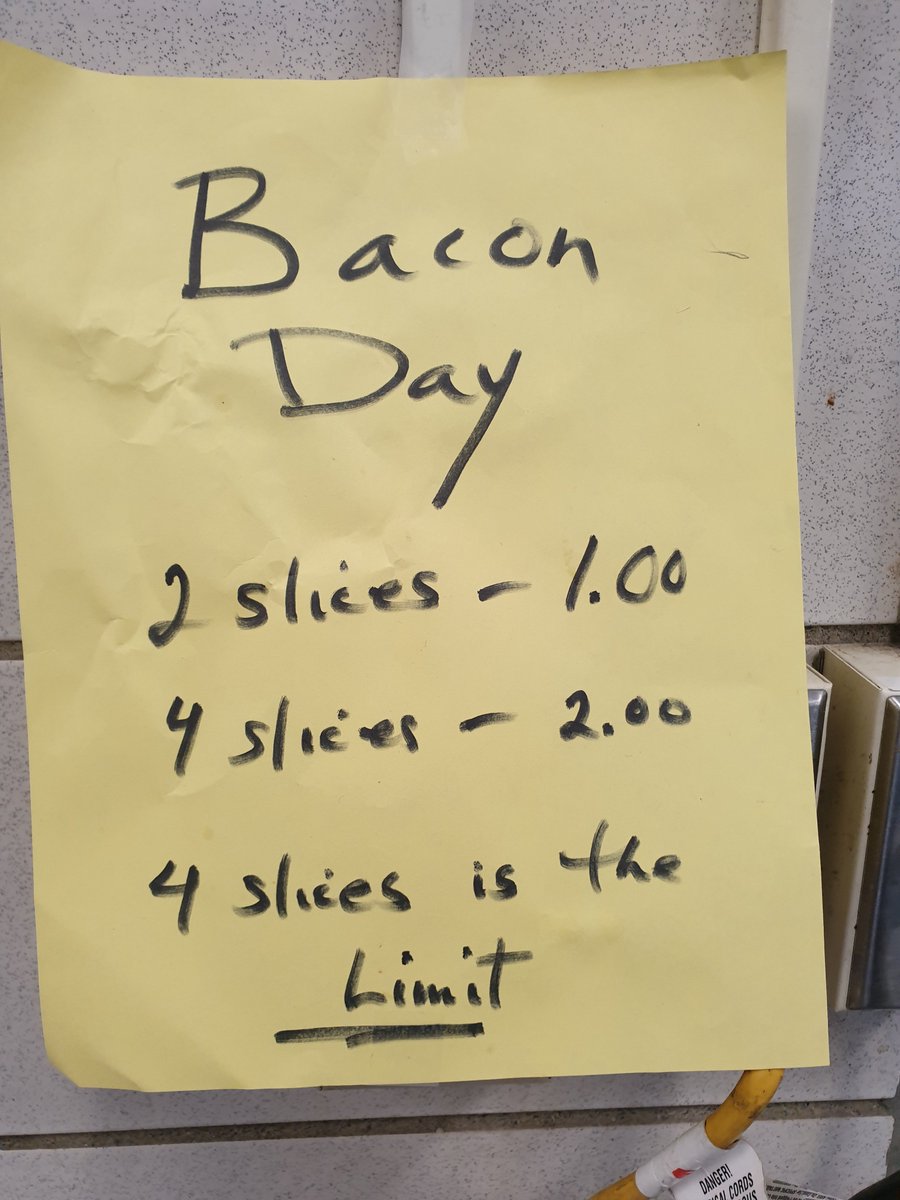 Bacon
Day
2 slices - 1.00
4 slices - 2.00
4 slices is the
Limit
DANGER!
CORDS